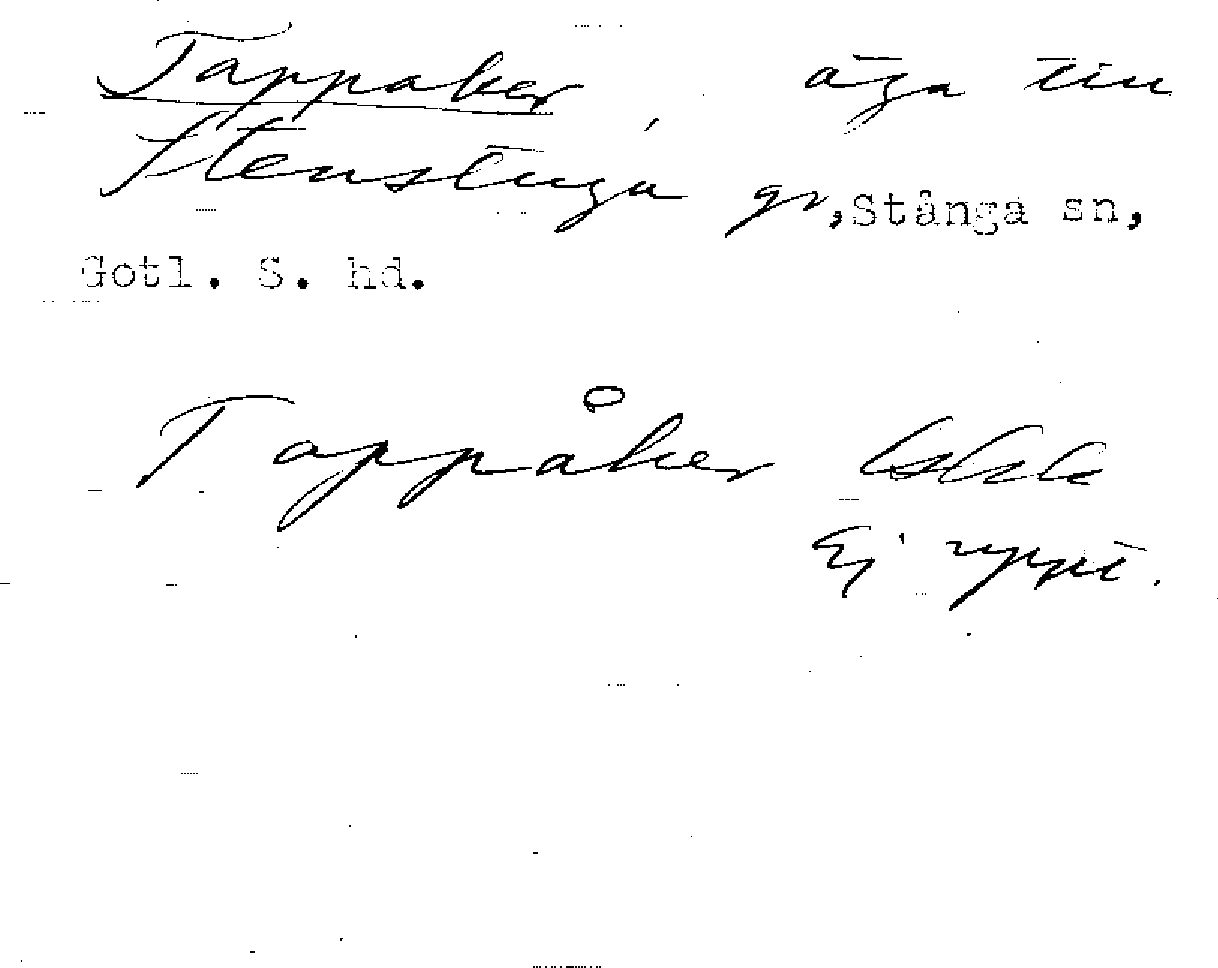 Tappaker, äga till
Stenstuga gr, Stånga sn,
Gotl. S. hd.
Tappåker
Ej uppt.